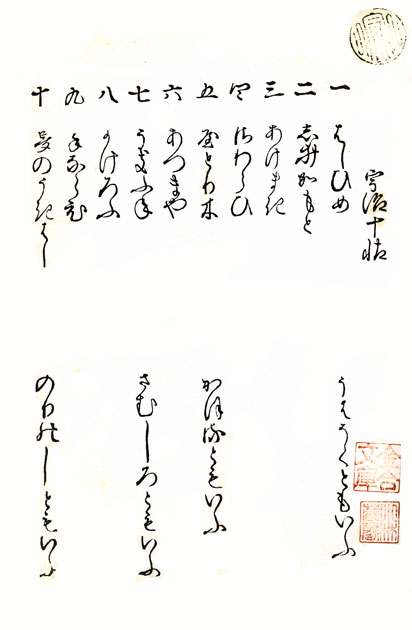 宇治十帖
一 はしひめ うはそくともいふ
二 志ゐかもと
三 あけまき
四 さわらひ
五 やとり木 かほ鳥ともいふ
六 あつまや
七 うきふね さむしろともいふ
八 かけろふ
九 手ならひ
十 夢のうきはし のりのしともいふ
文庫